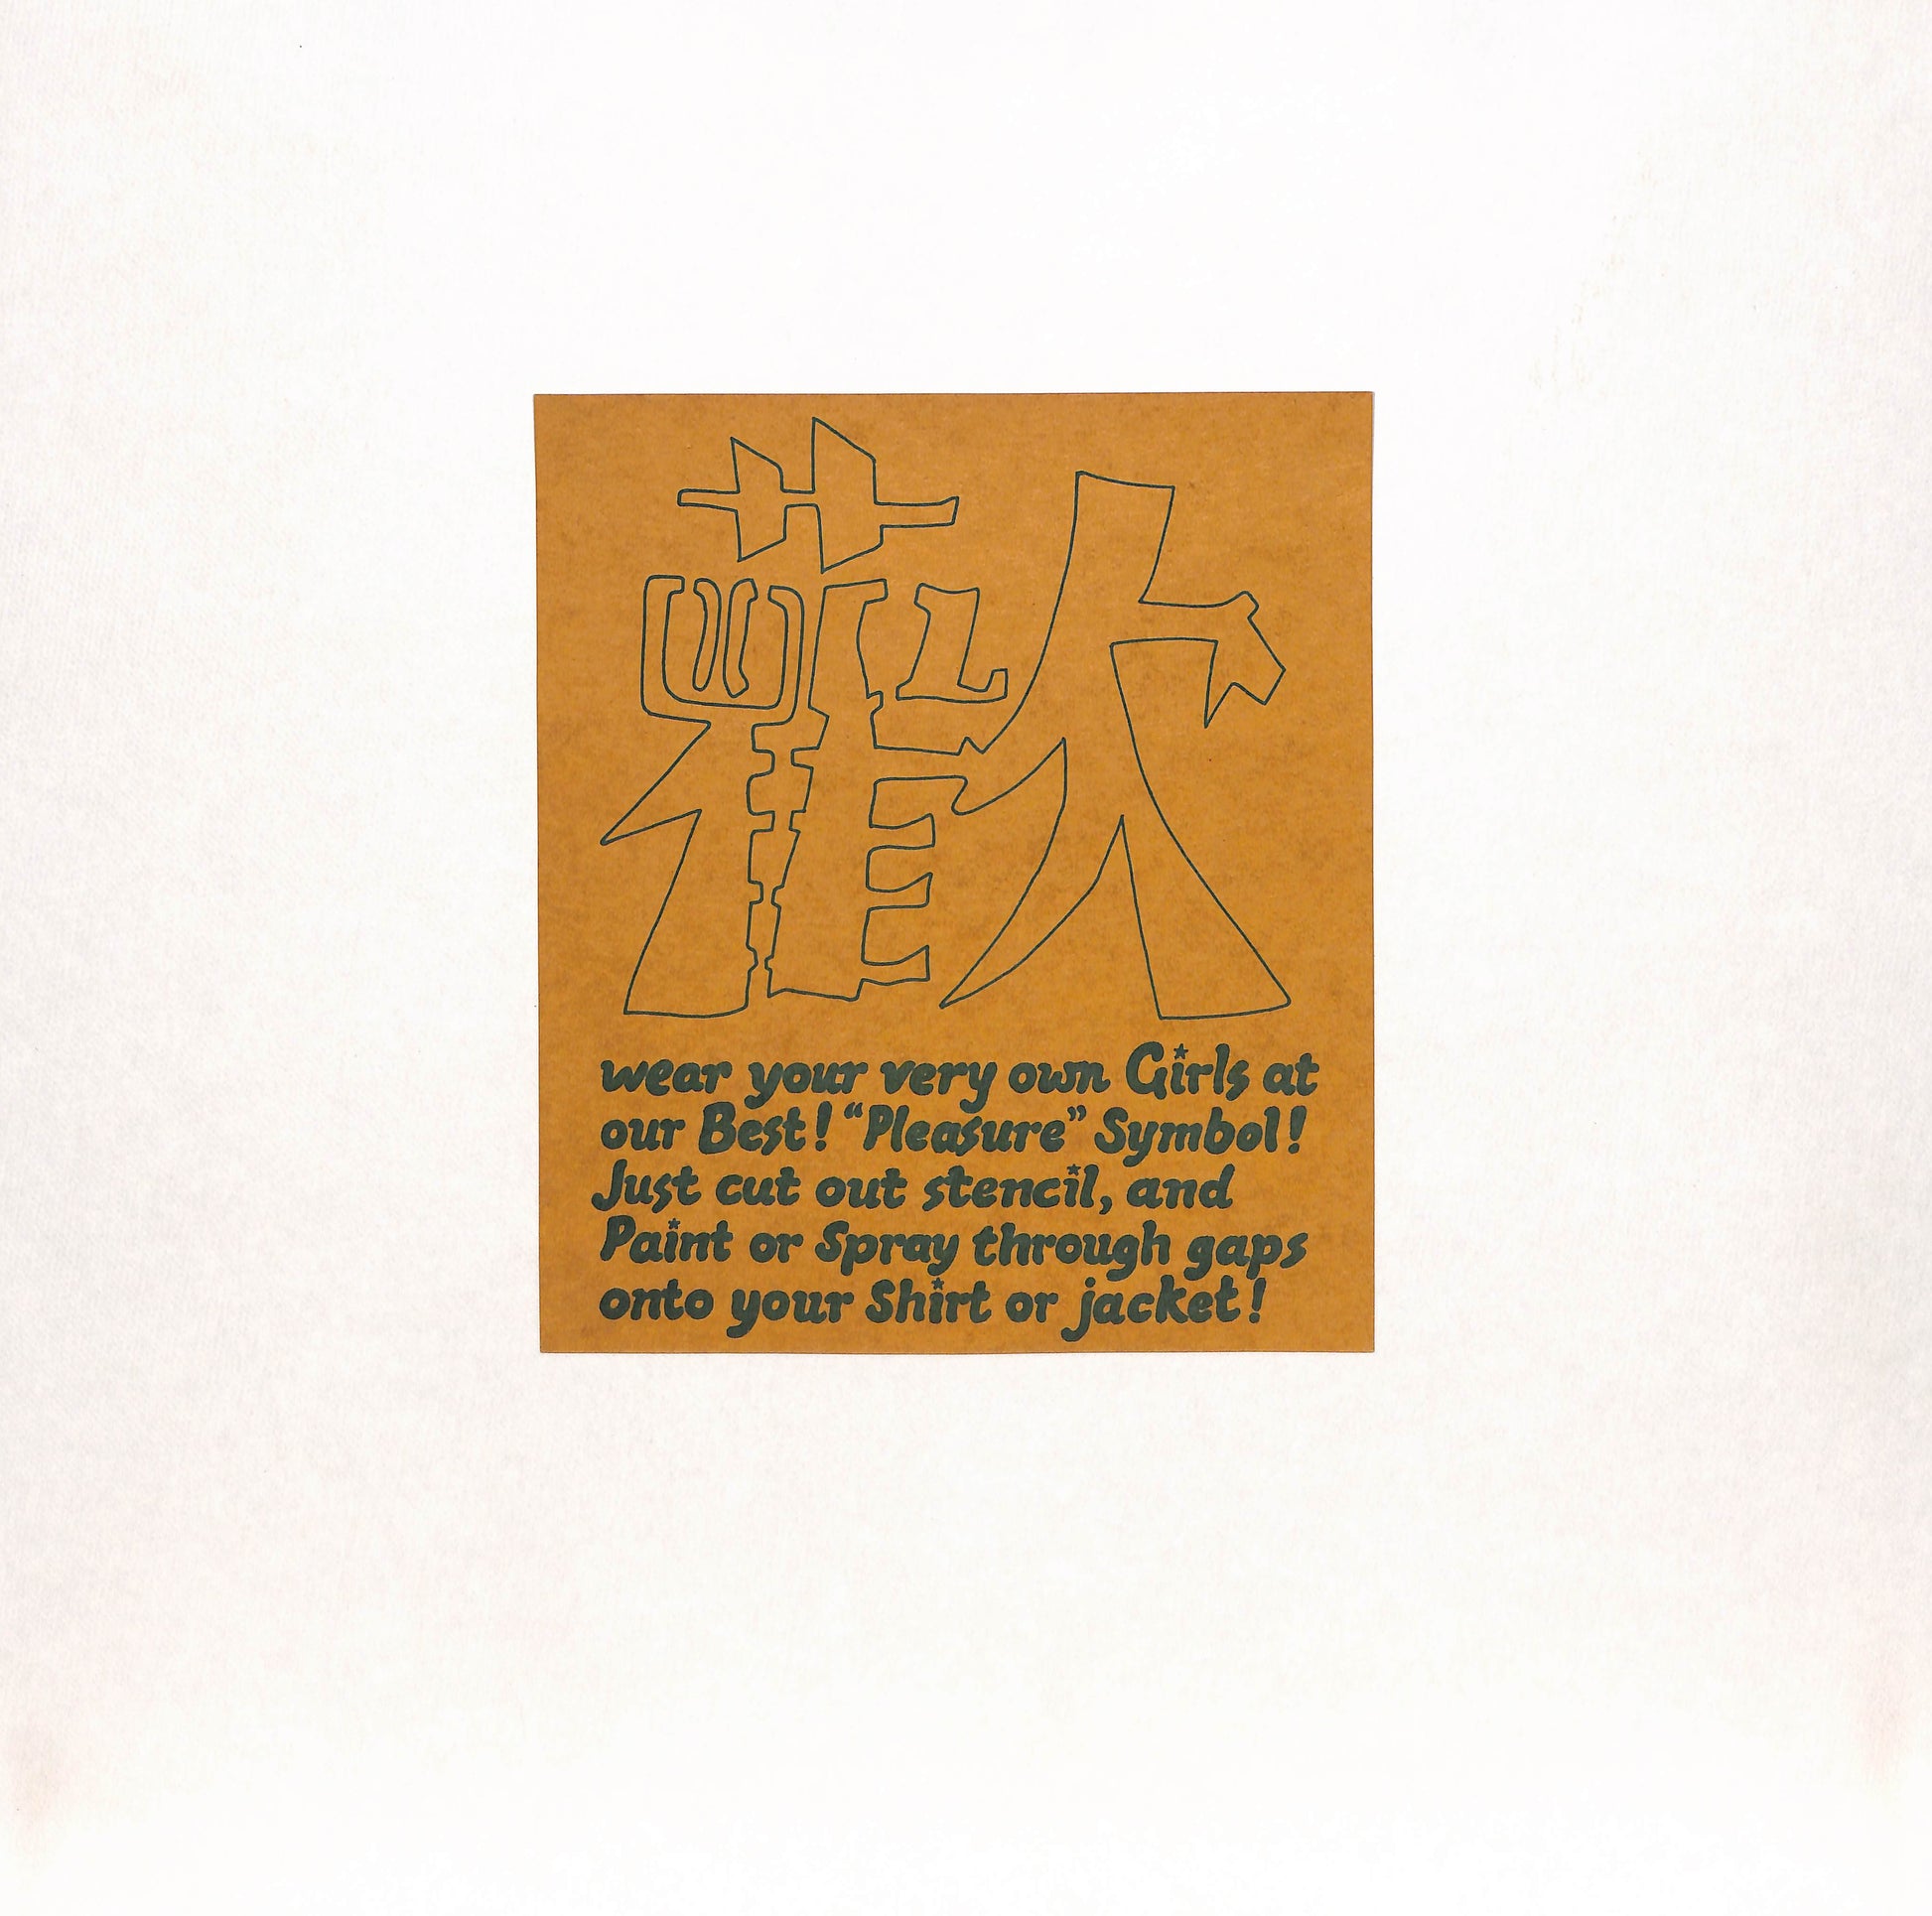 歡
wear your very own Girls at
our Best! “Pleasure” Symbol!
Just cut out stencil, and
Paint or Spray through gaps
onto your Shirt or jacket!